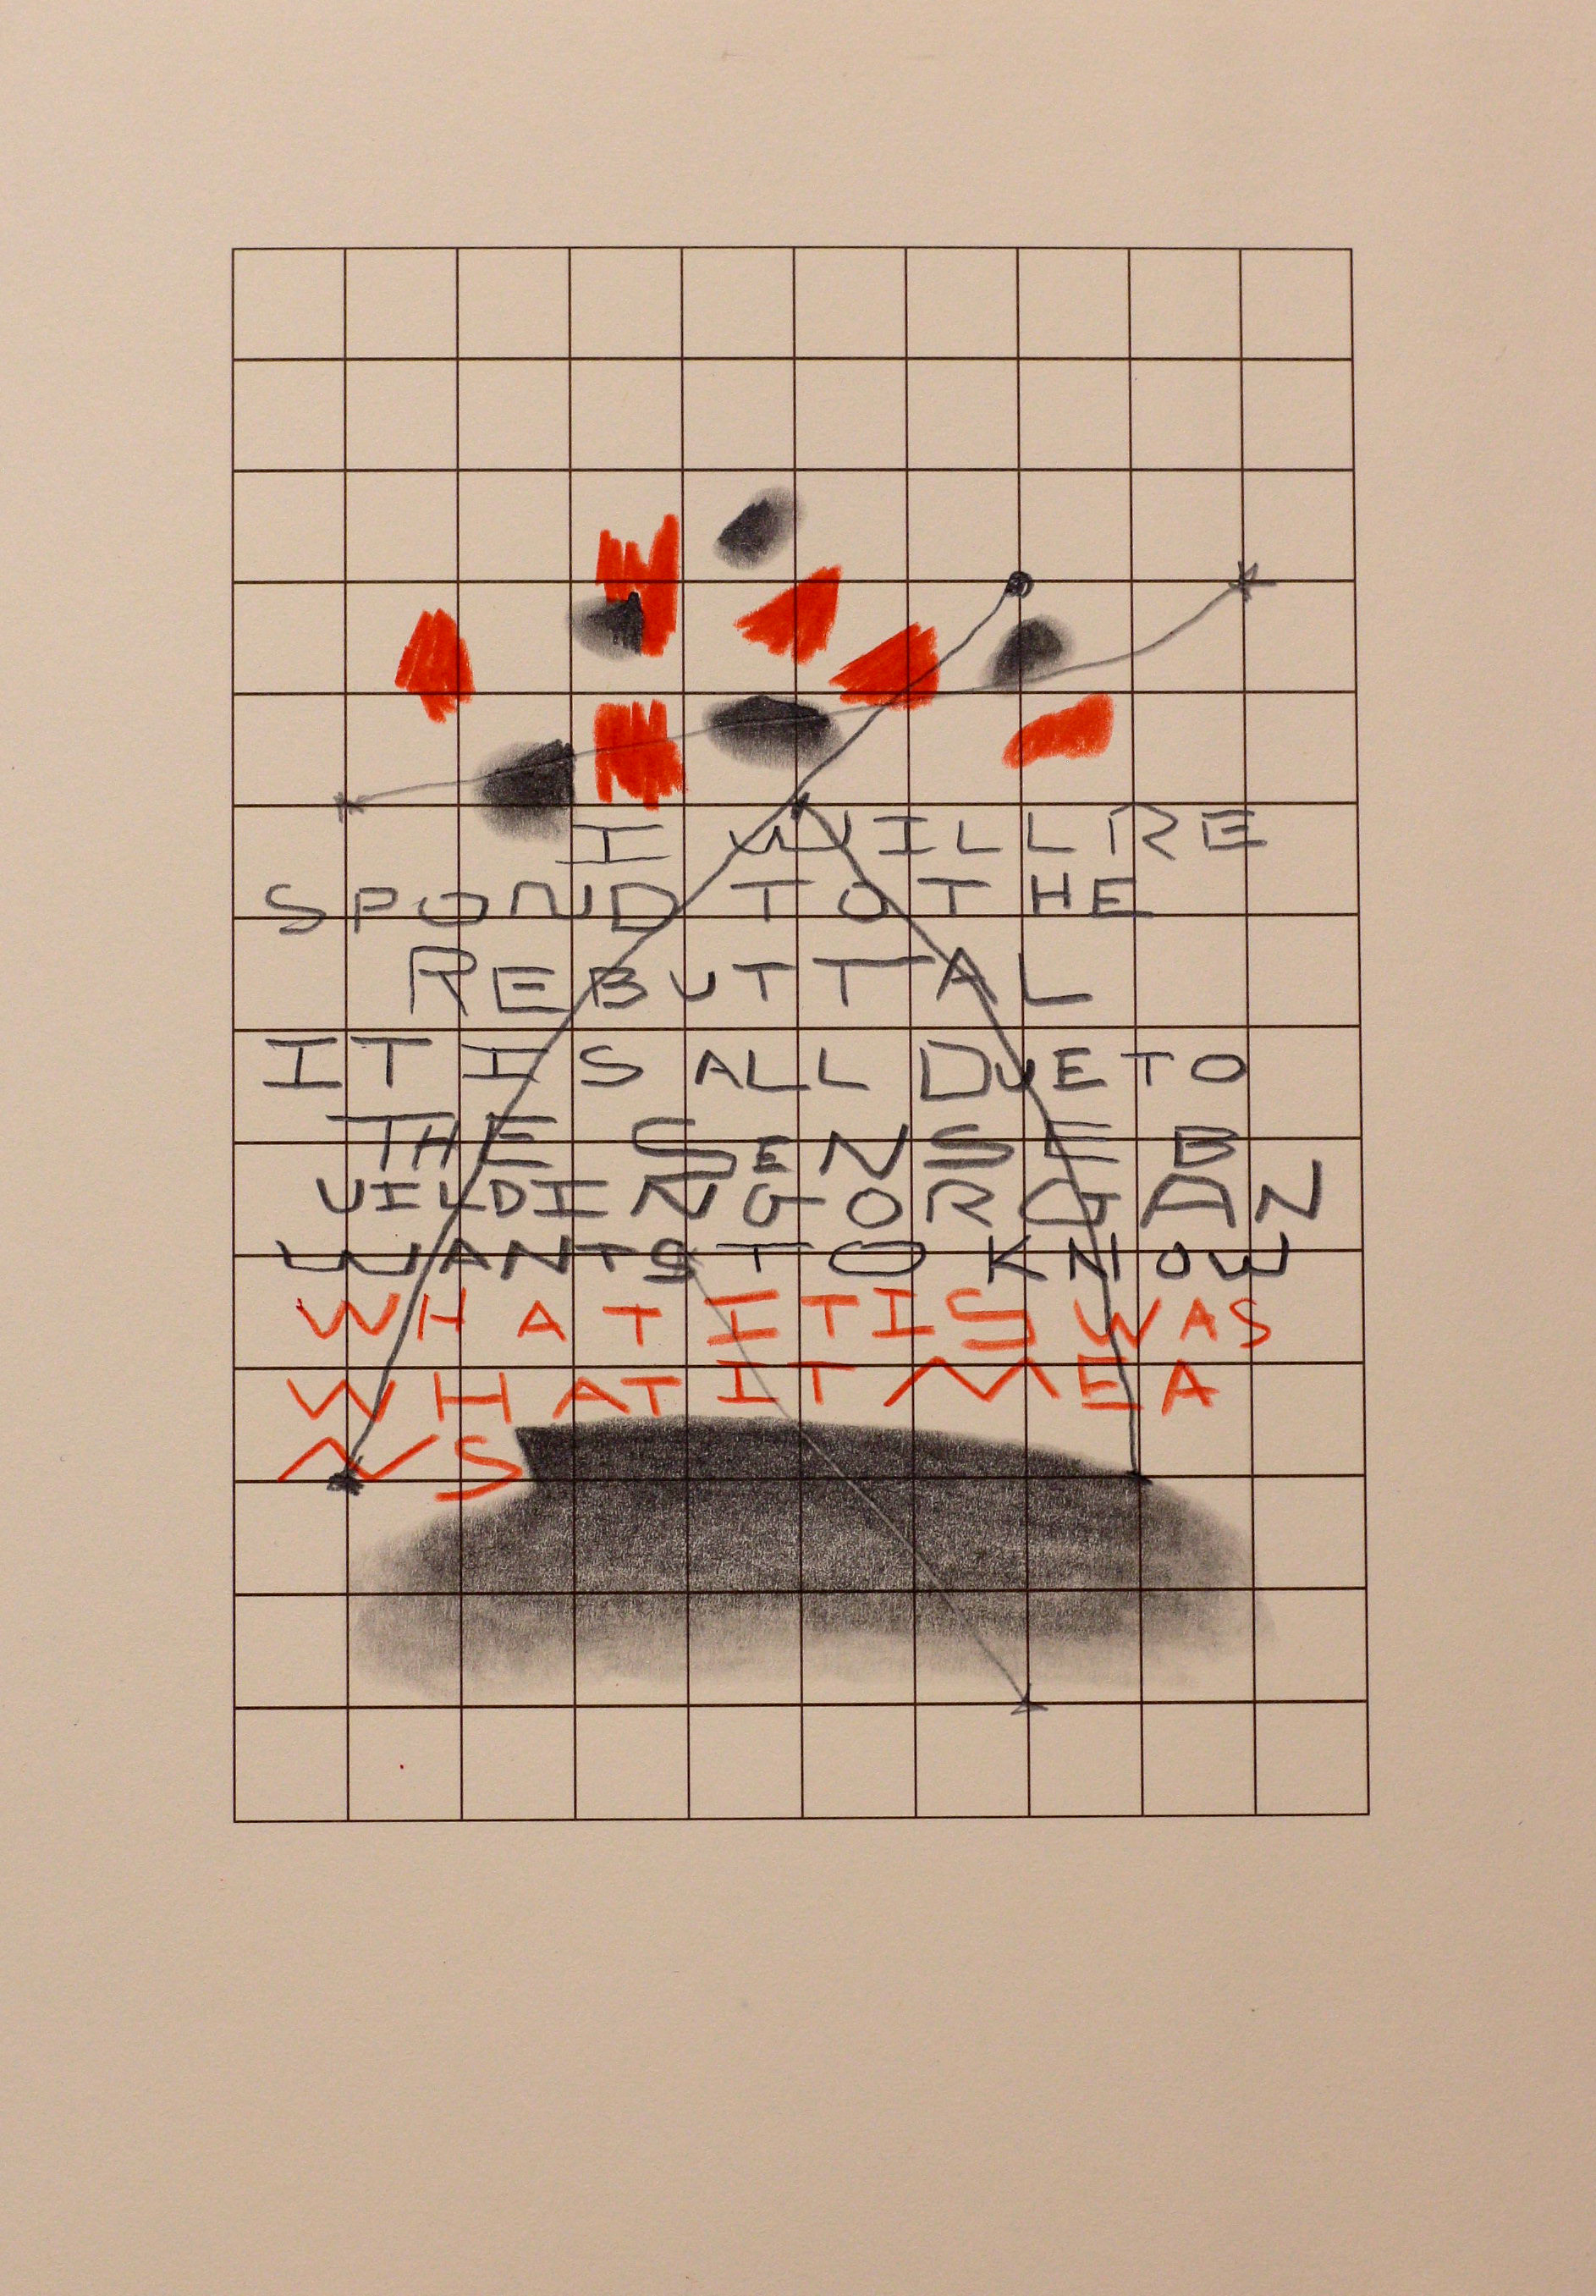 I WILL RE
SPOND TO THE
REBUTTAL
IT IS ALL DUE TO
THE SENSE B
UILDING ORGAN
WANTS TO KNOW
WHAT IT IS WAS
WHAT IT MEA
NS